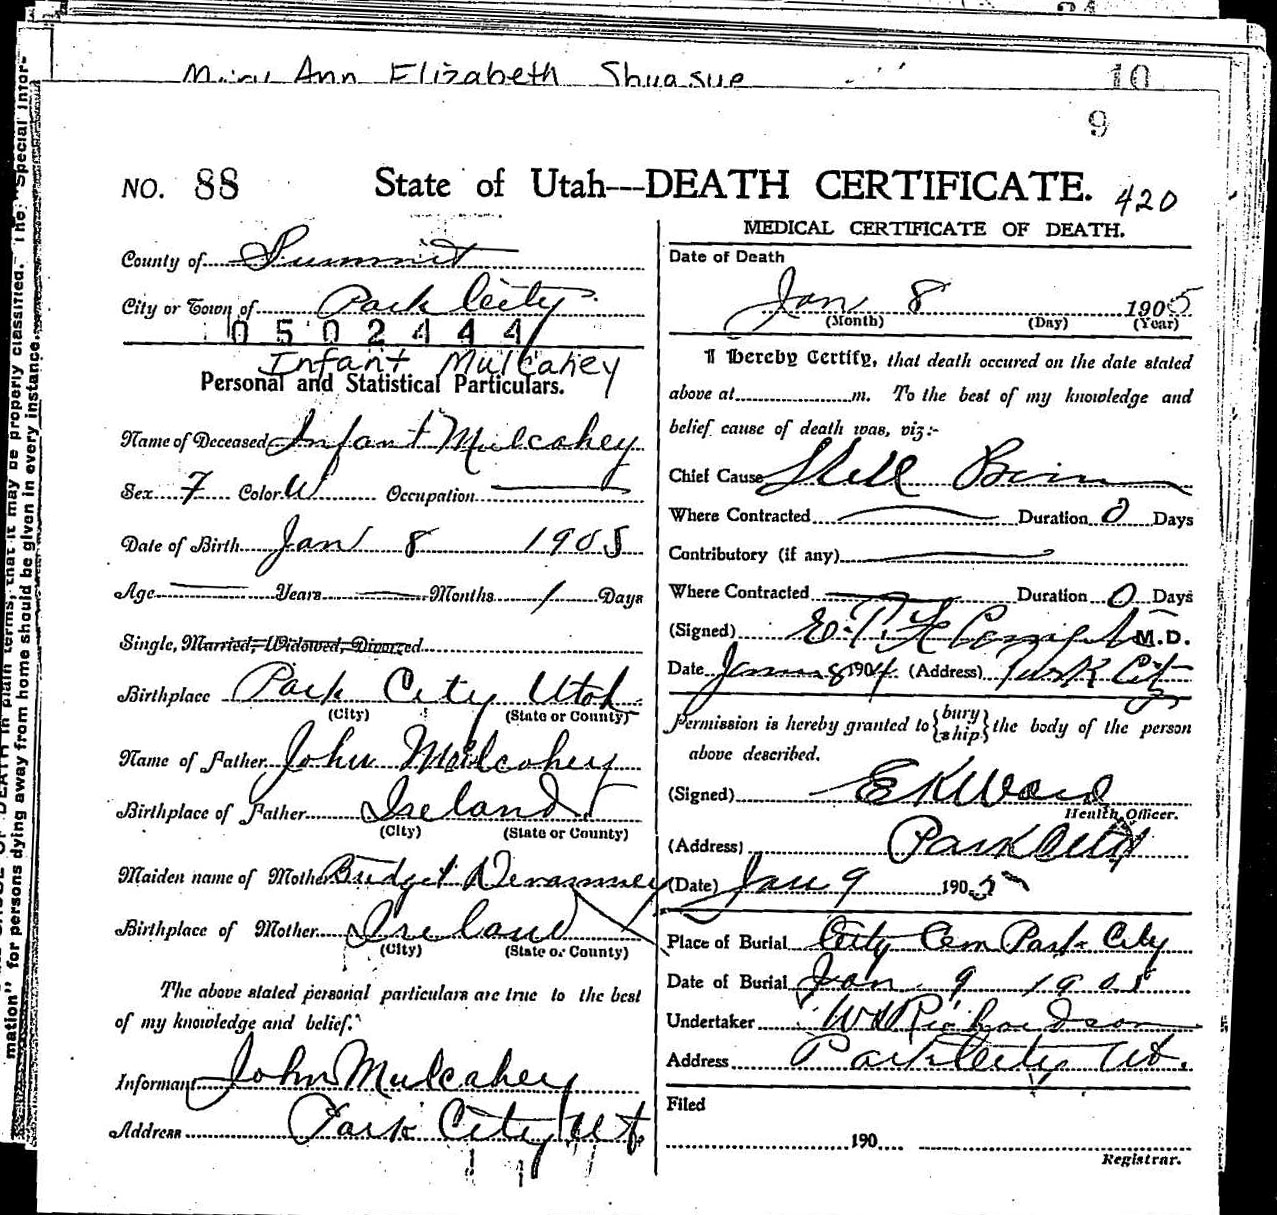 Ann Elizabeth Shuasue
10
9
NO. 88 State of Utah---DEATH CERTIFICATE. 420
County of Summit
City or Town of Park City
0502444
Infant Mulcahey
Personal and Statistical Particulars.
Name of Deceased Infant Mulcahey
Sex F Color W Occupation
Date of Birth Jan 8 1905
Age Years Months 1 Days
Single, Married, Widowed, Divorced
Birthplace Park City Utah
(City) (State or County)
Name of Father John Mulcahey
Birthplace of Father Ireland
(City) (State or County)
Maiden name of Mother Bridget
Birthplace of Mother Ireland
(City) (State or County)
The above stated personal particulars are true to the best
of my knowledge and belief.
Informant John Mulcahey
Address Park City Ut
MEDICAL CERTIFICATE OF DEATH.
Date of Death
Jan 8 1905
(Month) (Day) (Year)
I Hereby Certify, that death occured on the date stated
above at m. To the best of my knowledge and
belief cause of death was, viz:-
Chief Cause Still Born
Where Contracted Duration 0 Days
Contributory (if any)
Where Contracted Duration 0 Days
(Signed) M.D.
Date 8 1904 (Address) Park City
Permission is hereby granted to {bury ship} the body of the person
above described.
(Signed) E K Ward
Health Officer.
(Address) Park City
(Date) Jan 9 1905
Place of Burial City Cem Park City
Date of Burial Jan 9 1905
Undertaker Richardson
Address Park City Ut.
Filed
190
Registrar.
mation" for persons dying away from home should be given in every instance.
DEATH in plain terms, that it may be properly classified. The "Special Infor-